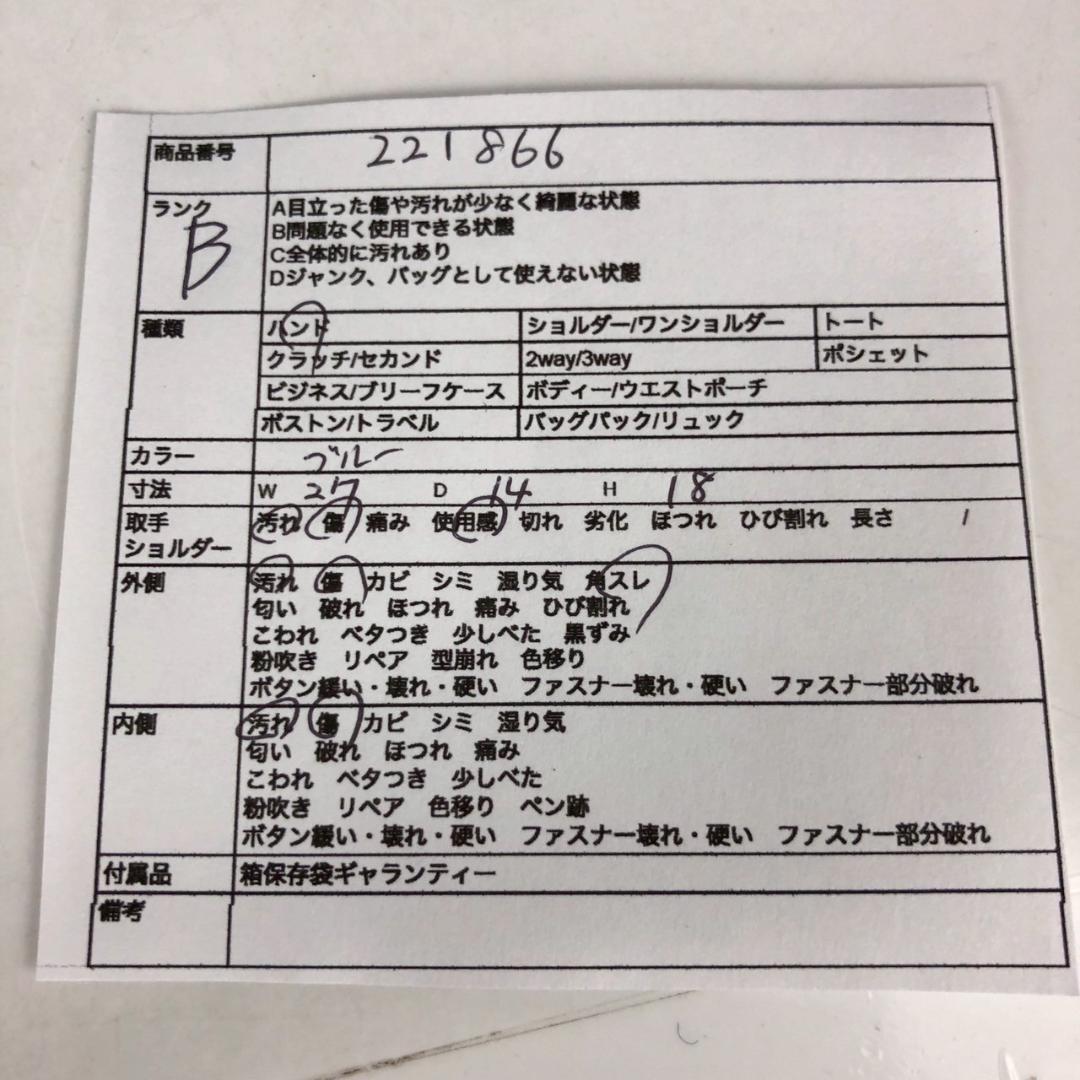 商品番号 221866
ランク B
A目立った傷や汚れが少なく綺麗な状態
B問題なく使用できる状態
C全体的に汚れあり
Dジャンク、バッグとして使えない状態
種類 ハンド ショルダー/ワンショルダー トート
クラッチ/セカンド 2way/3way ポシェット
ビジネス/ブリーフケース ボディー/ウエストポーチ
ボストン/トラベル バッグパック/リュック
カラー ブルー
寸法 W 27 D 14 H 18
取手 汚れ 傷 痛み 使用感 切れ 劣化 ほつれ ひび割れ 長さ /
ショルダー
外側 汚れ 傷 カビ シミ 湿り気 角スレ
匂い 破れ ほつれ 痛み ひび割れ
こわれ ベタつき 少しべた 黒ずみ
粉吹き リペア 型崩れ 色移り
ボタン緩い・壊れ・硬い ファスナー壊れ・硬い ファスナー部分破れ
内側 汚れ 傷 カビ シミ 湿り気
匂い 破れ ほつれ 痛み
こわれ ベタつき 少しべた
粉吹き リペア 色移り ペン跡
ボタン緩い・壊れ・硬い ファスナー壊れ・硬い ファスナー部分破れ
付属品 箱保存袋ギャランティー
備考